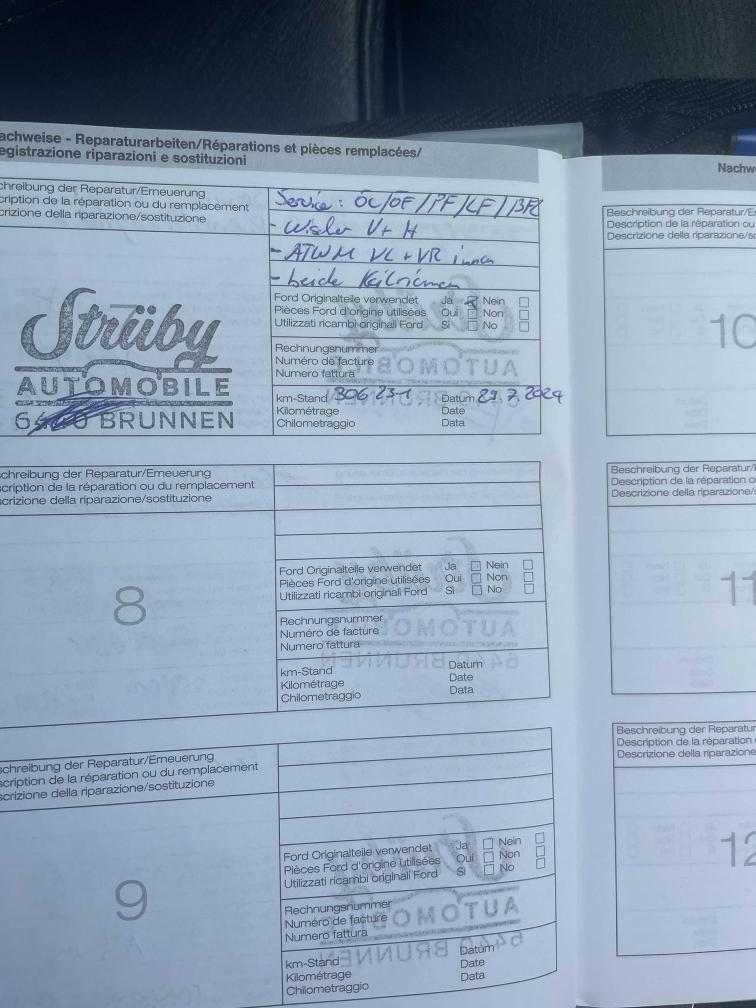 achweise - Reparaturarbeiten/Réparations et pièces remplacées/
egistrazione riparazioni e sostituzioni
chreibung der Reparatur/Erneuerung
cription de la réparation ou du remplacement
crizione della riparazione/sostituzione
Service: ÖL/ÖF/PF/LF/BFL
- Wischer V+H
- ATWM VL+VR innen
- beide Keilriemen
Strüby
AUTOMOBILE
BRUNNEN
Ford Originalteile verwendet Ja Nein
Pièces Ford d'origine utilisées Oui Non
Utilizzati ricambi originali Ford Sì No
Rechnungsnummer
Numéro de facture
Numero fattura
km-Stand 306 231 Datum 29.7.2024
Kilométrage Date
Chilometraggio Data
schreibung der Reparatur/Erneuerung
scription de la réparation ou du remplacement
scrizione della riparazione/sostituzione
8
Ford Originalteile verwendet Ja Nein
Pièces Ford d'origine utilisées Oui Non
Utilizzati ricambi originali Ford Sì No
Rechnungsnummer
Numéro de facture
Numero fattura
km-Stand Datum
Kilométrage Date
Chilometraggio Data
schreibung der Reparatur/Erneuerung
scription de la réparation ou du remplacement
scrizione della riparazione/sostituzione
9
Ford Originalteile verwendet Ja Nein
Pièces Ford d'origine utilisées Oui Non
Utilizzati ricambi originali Ford Sì No
Rechnungsnummer
Numéro de facture
Numero fattura
km-Stand Datum
Kilométrage Date
Chilometraggio Data
Nachwe
Beschreibung der Reparatur/E
Description de la réparation ou
Descrizione della riparazione/so
10
Beschreibung der Reparatur/
Description de la réparation o
Descrizione della riparazione/s
11
Beschreibung der Reparatur
Description de la réparation
Descrizione della riparazione
12